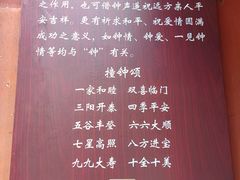 之作用，也可借钟声遥祝远方亲人平
安吉祥。更有祈求和平、祝爱情圆满
成功之意义，如钟情、钟爱、一见钟
情等均与“钟”有关。
撞钟颂
一家和睦 双喜临门
三阳开泰 四季平安
五谷丰登 六六大顺
七星高照 八方进宝
九九大寿 十全十美